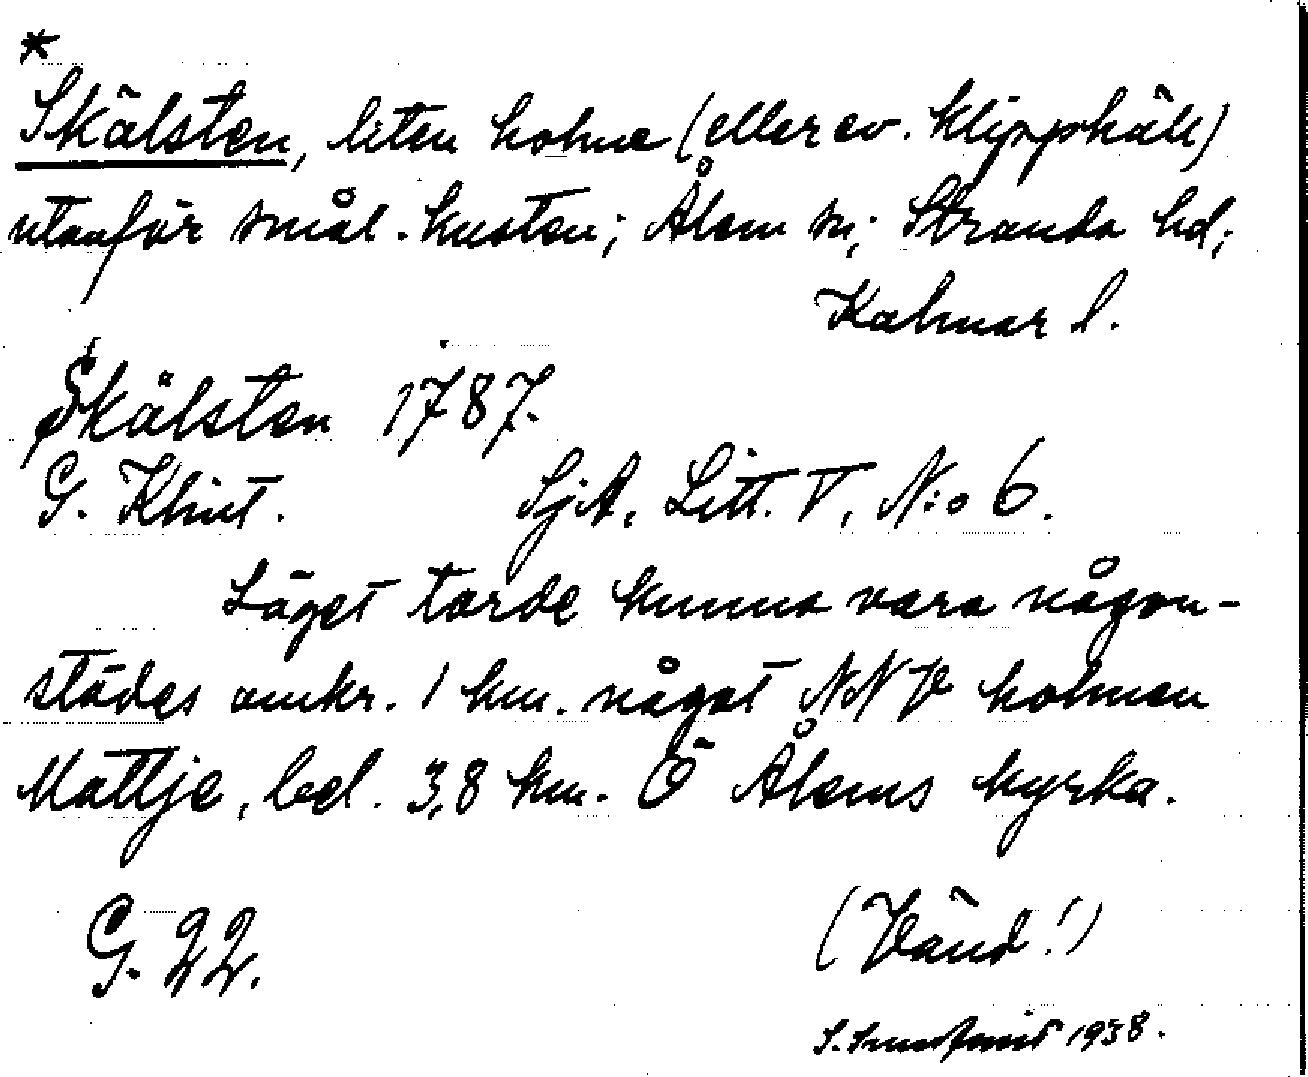 *
Skälsten, liten holme (eller ev. klipphäll)
utanför smål. kusten; Ålem sn; Stranda hd;
Kalmar l.
Skälsten 1787.
G. Klint. SjA, Litt. V, N:o 6.
Läget torde kunna vara någon-
städes omkr. 1 km. något NNV holmen
Mattje, bel. 3,8 km. Ö Ålems kyrka.
G. 22. (Vänd!)
S. 1938.